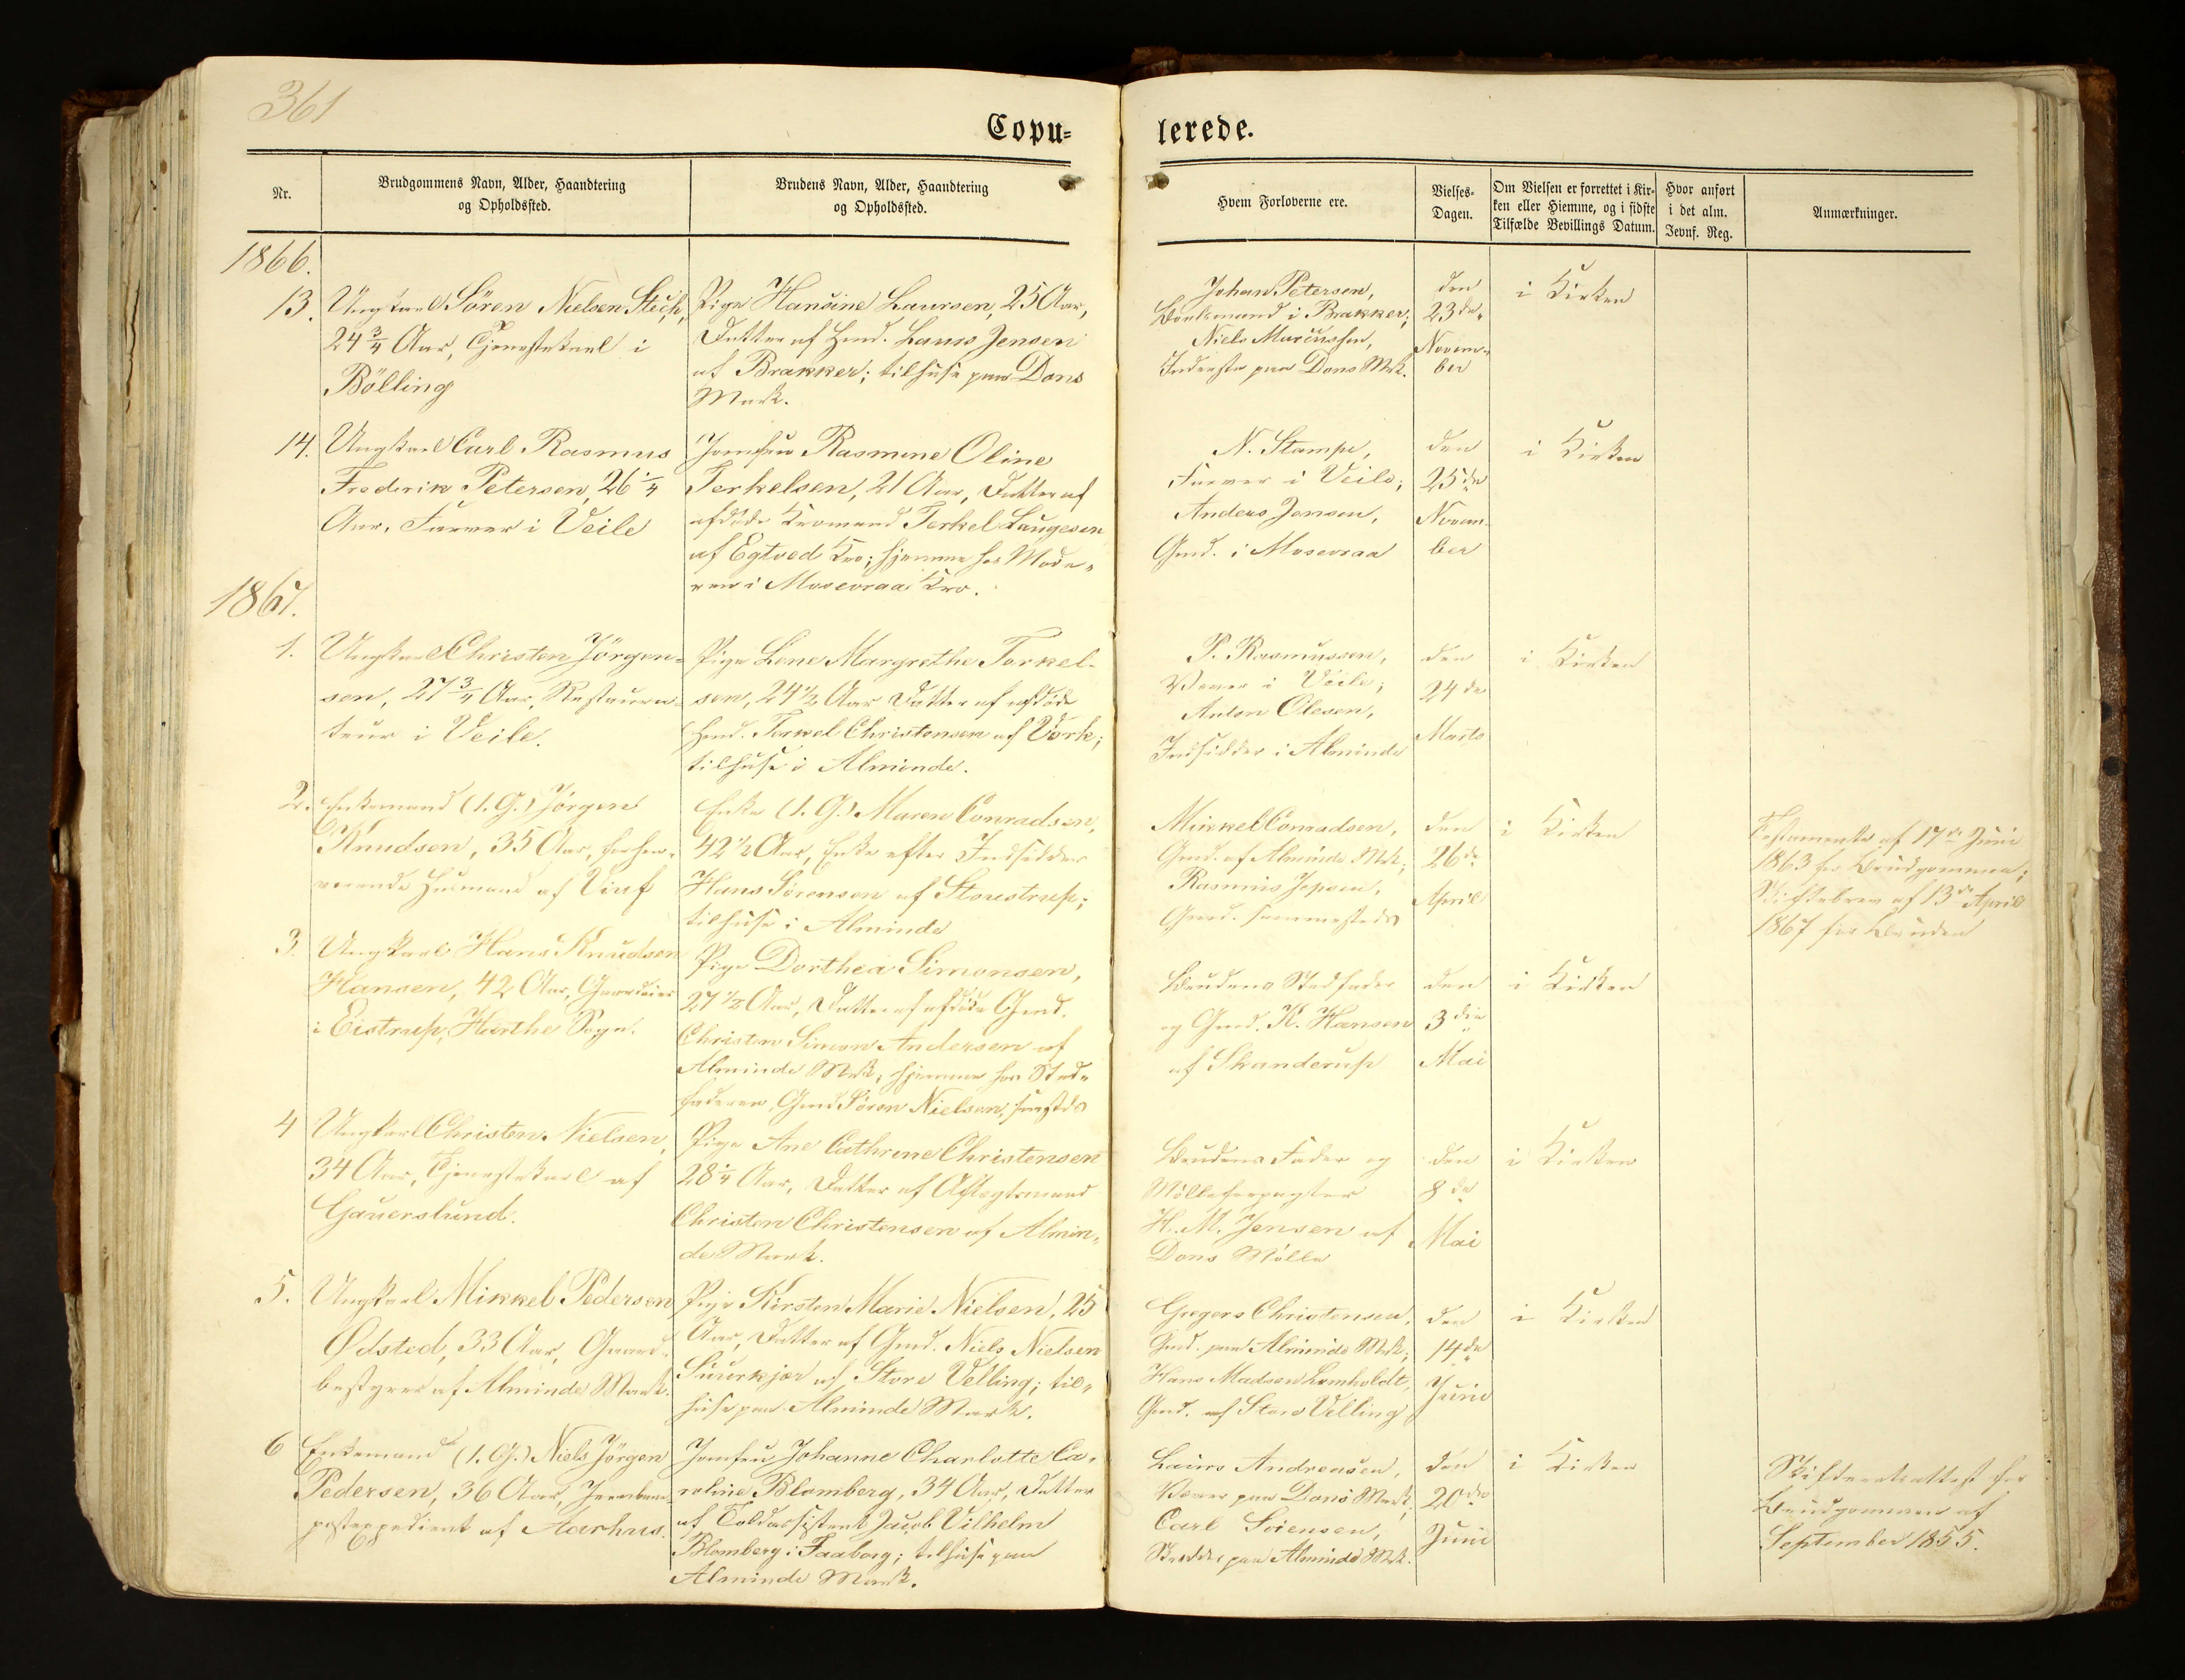 361
Copu-
lerede.
Nr.
Brudgommens Navn, Alder, Haandtering
og Opholdssted.
Brudens Navn, Alder, Haandtering
og Opholdssted.
Hvem Forloverne ere.
Vielses-
Dagen.
Om Vielsen er forrettet i Kir-
ken eller Hiemme, og i sidste
Tilfælde Bevillings Datum.
Hvor anført
i det alm.
Jevnf. Reg.
Anmærkninger.
1866.
13.
Ungkarl Sören Nielsen
24 3/4 Aar, Tjenestekarl i
Bölling
Pige Hansine Laursen, 25 Aar,
Datter af Hmd. Laurs Jensen
af Brakker; tilhuse paa Dons
Mark.
Johan Petersen,
Boelsmand i Brakker;
Niels Marcussen,
Inderste paa Dons Mrk.
den
23de
Novem-
ber
i Kirken
14.
Ungkarl Carl Rasmus
Frederik Petersen, 26 1/4
Aar, Farver i Veile
Jomfru Rasmine Oline
Terkelsen, 21 Aar, Datter af
afdöde Kromand Terkel Laugesen
af Egtved Kro; hjemme hos Mode-
ren i Mosevraa Kro.
N. Stampe,
Farver i Veile;
Anders Jensen,
Gmd. i Mosevraa
den
25de
Novem-
ber
i Kirken
1867.
1.
Ungkarl Christen Jörgen-
sen, 27 3/4 Aar, Restaura-
teur i Veile.
Pige Lene Margrethe Terkel-
sen, 24 1/2 Aar Datter af afdöde
Hmd. Terkel Christensen af Vork;
tilhuse i Alminde.
P. Rasmussen,
Væver i Veile;
Anton Olesen,
Indsidder i Alminde
den
24de
Marts
i Kirken
2.
Enkemand (1. G.) Jörgen
Knudsen, 35 Aar, forhen-
værende Husmand af Viuf
Enke (1. G.) Maren Conradsen,
42 1/2 Aar, Enke efter Indsidder
Hans Sörensen af Stoustrup;
tilhuse i Alminde
Mikkel Conradsen,
Gmd. af Alminde Mrk;
Rasmus Jepsen,
Gmd. sammesteds
den
26de
April
i Kirken
Testamente af 17de Juni
1863 for Brudgommen;
Skiftebrev af 13de April
1867 for Bruden
3.
Ungkarl Hans Knudsen
Hansen, 42 Aar, Gaardeier
i Eistrup, Harthe Sogn.
Pige Dorthea Simonsen,
27 1/2 Aar, Datter af afdöde Gmd.
Christen Simon Andersen af
Alminde Mrk; hjemme hos Sted-
faderen, Gmd Sören Nielsen,
Brudens Stedfader
og Gmd. K. Hansen
af Skanderup
den
3die
Mai
i Kirken
4
Ungkarl Christen Nielsen,
34 Aar, Tjenestekarl af
Gauerslund.
Pige Ane Cathrine Christensen
28 1/4 Aar, Datter af Aftægtsmand
Christen Christensen af Almin-
de Mark.
Brudens Fader og
Mölleforpagter
H. M. Jensen af
Dons Mölle
den
8de
Mai
i Kirken
5.
Ungkarl Mikkel Pedersen
Ødsted, 33 Aar, Gaard-
bestyrer af Alminde Mark.
Pige Kirsten Marie Nielsen, 25
Aar, Datter af Gmd. Niels Nielsen
Suurkjær af Store Velling; til-
huse paa Alminde Mark.
Gregers Christensen,
Gmd. paa Alminde Mrk;
Hans Madsen Lomholdt,
Gmd. af Store Velling
den
14de
Juni
i Kirken
6
Enkemand (1. G.) Niels Jörgen
Pedersen, 36 Aar, Jernbane-
postexpedient af Aarhus.
Jomfru Johanne Charlotte Ca-
roline Blomberg, 34 Aar, Datter
af Toldassistent Jacob Vilhelm
Blomberg i Faaborg; tilhuse paa
Alminde Mark.
Laurs Andreasen,
Væver paa Dons Mark;
Carl Sörensen,
Skrædder paa Alminde Mrk.
den
20de
Juni
i Kirken
Skifteretsattest for
Brudgommen af
September 1855.